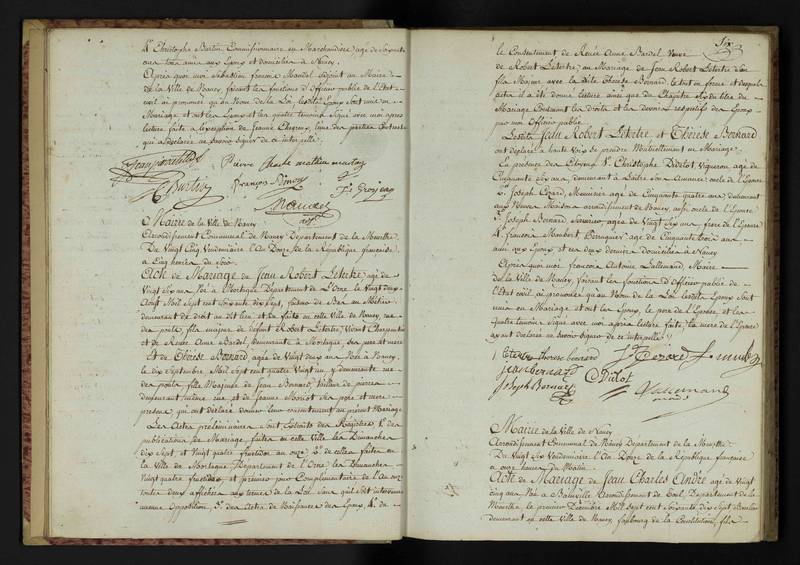 4° Christophe Bertin Commissionnaire en Marchandises âgé de Soixante
ans tous amis aux Epoux et domiciliés à Nancy.
Après quoi moi Sébastien françois Mandel Adjoint au Maire
de la Ville de Nancy, faisant les fonctions d'Officier public de l'Etat
civil ai prononcé qu'au Nom de la Loi, lesdits Epoux sont unis en
Mariage et ont les Epoux et les quatre témoins signé avec moi après
lecture faite à l'exception de Jeanne
qui a déclaré ne savoir signer de ce interpellé.
Pierre
françois Simon
Mandel
adjt
Mairie de la Ville de Nancy
Arrondissement Communal de Nancy Département de la Meurthe.
Du Vingt Cinq Vendémiaire l'An Douze de la République française
à Cinq heures du Soir.
Acte de Mariage de Jean Robert Letertre âgé de
Vingt Six ans Né à Mortagne Département de l'Orne le Vingt deux
Août Mil Sept cent soixante dix Sept, faiseur de Bas au Métier
demeurant de droit au dit lieu et de fait en cette Ville de Nancy, rue
des ponts, fils majeur de défunt Robert Letertre, Vivant Charpentier
et de Renée Anne Bardel, demeurante à Mortagne, ses père et mère
Et de Thérèse Bernard, âgée de Vingt deux ans Née à Nancy
le dix Septembre Mil Sept cent quatre Vingt un y demeurante rue
des ponts, fille Majeure de Jean Bernard, tailleur de pierres
demeurant même rue et de Jeanne Moriot ses père et mère
présens qui ont déclaré donner leur consentement au présent Mariage
Les Actes préliminaires sont Extraits des Registres 1° des
publications de Mariage faites en cette Ville les Dimanches
dix Sept et Vingt quatre fructidor an onze 2° de celles faites en
la Ville de Mortagne Département de l'Orne les Dimanches
Vingt quatre fructidor et premier jour Complémentaire de l'An onze
toutes deux affichées aux termes de la Loi sans qu'il soit intervenu
aucune opposition, 3° des Actes de Naissances des Epoux 4° du
Six
le Consentement de Renée Anne Bardel Veuve
de Robert Letertre, au Mariage de Jean Robert Letertre Son
fils Majeur avec la dite Thérèse Bernard, le tout en forme et desquels
actes il a été donné lecture ainsi que du Chapitre Six du titre du
Mariage Concernant les droits et les devoirs respectifs des Epoux
par moi Officier public
Lesdits Jean Robert Letertre et Thérèse Bernard
ont déclaré à haute Voix se prendre Mutuellement en Mariage.
En présence des Citoyens 1° Christophe Didelot, Vigneron âgé de
Cinquante Six ans, demeurant à oncle de l'Epouse
2° Joseph Menuisier âgé de Cinquante quatre ans demeurant
aux arrondissement de Nancy aussi oncle de l'Epouse
3° Joseph Bernard, âgé de Vingt Six ans frère de l'Epouse
4° françois Perruquier âgé de Cinquante trois ans
ami aux Epoux et ces deux derniers domiciliés à Nancy
Après quoi moi françois Antoine Lallemand Maire
de la Ville de Nancy, faisant les fonctions d'Officier public de
l'Etat civil, ai prononcé qu'au Nom de la Loi lesdits Epoux sont
unis en Mariage et ont les Epoux, le père de l'Epouse et les
quatre témoins signé avec moi après lecture faite, la mère de l'Epouse
ayant déclaré ne savoir signer de ce interpellée.
Letertre therese bernard
jean bernard
Joseph Bernard C Didlot
Lallemand
Mairie de la Ville de Nancy
Arrondissement Communal de Nancy Département de la Meurthe.
Du Vingt Six Vendémiaire l'An Douze de la République française
à onze heures du Matin
Acte de Mariage de Jean Charles André âgé de Vingt
Cinq ans Né à Bainville Arrondissement de Toul, Département de la
Meurthe, le premier Décembre Mil Sept cent Soixante dix Sept
demeurant en cette Ville de Nancy, faubourg de la Constitution, fils